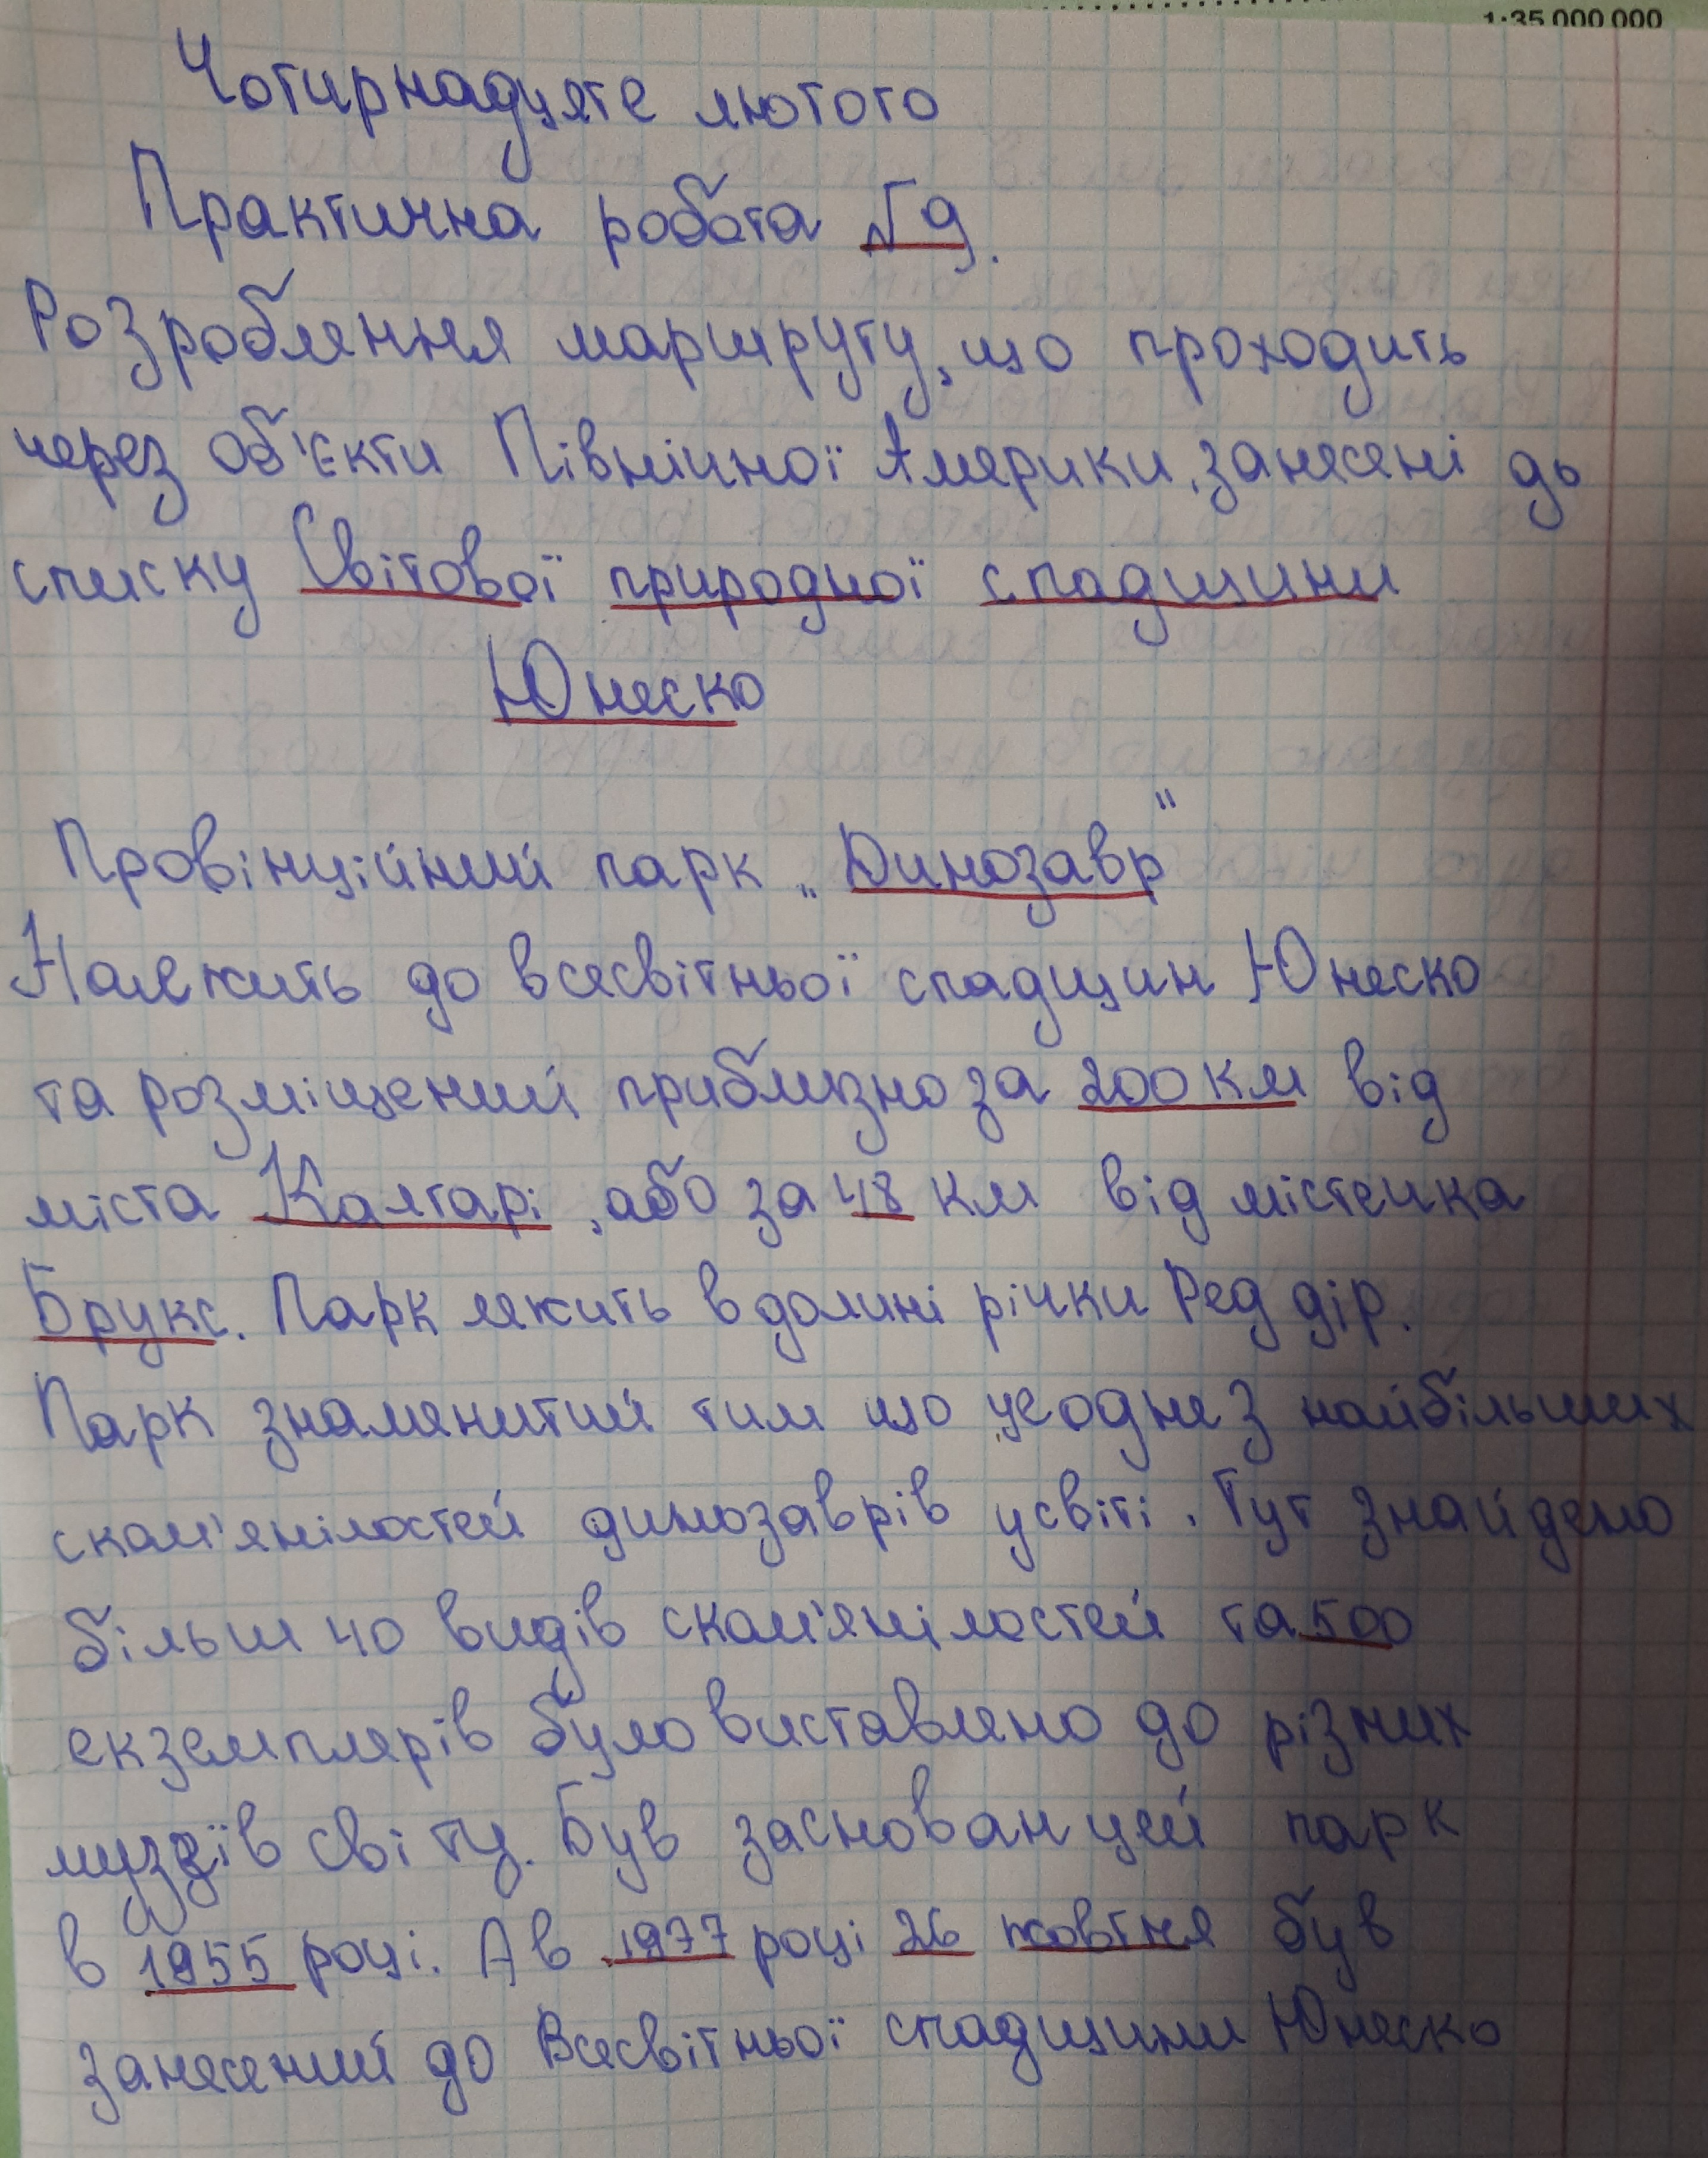 1:35 000 000
Чотирнадцяте лютого
Практична робота №9.
Розроблення маршруту, що проходить
через об'єкти Північної Америки, занесені до
списку Світової природної спадщини
Юнеско
Провінційний парк „Динозавр"
Належить до всесвітньої спадщин Юнеско
та розміщений приблизно за 200 км від
міста Калгарі, або за 48 км від містечка
Брукс. Парк лежить в долині річки Ред дір.
Парк знаменитий тим що це одне з найбільших
скам'янілостей динозаврів у світі. Тут знайдено
більш 40 видів скам'янілостей та 500
екземплярів було виставлено до різних
музеїв світу. Був заснован цей парк
в 1955 році. А в 1977 році 26 жовтня був
занесений до Всесвітньої спадщини Юнеско